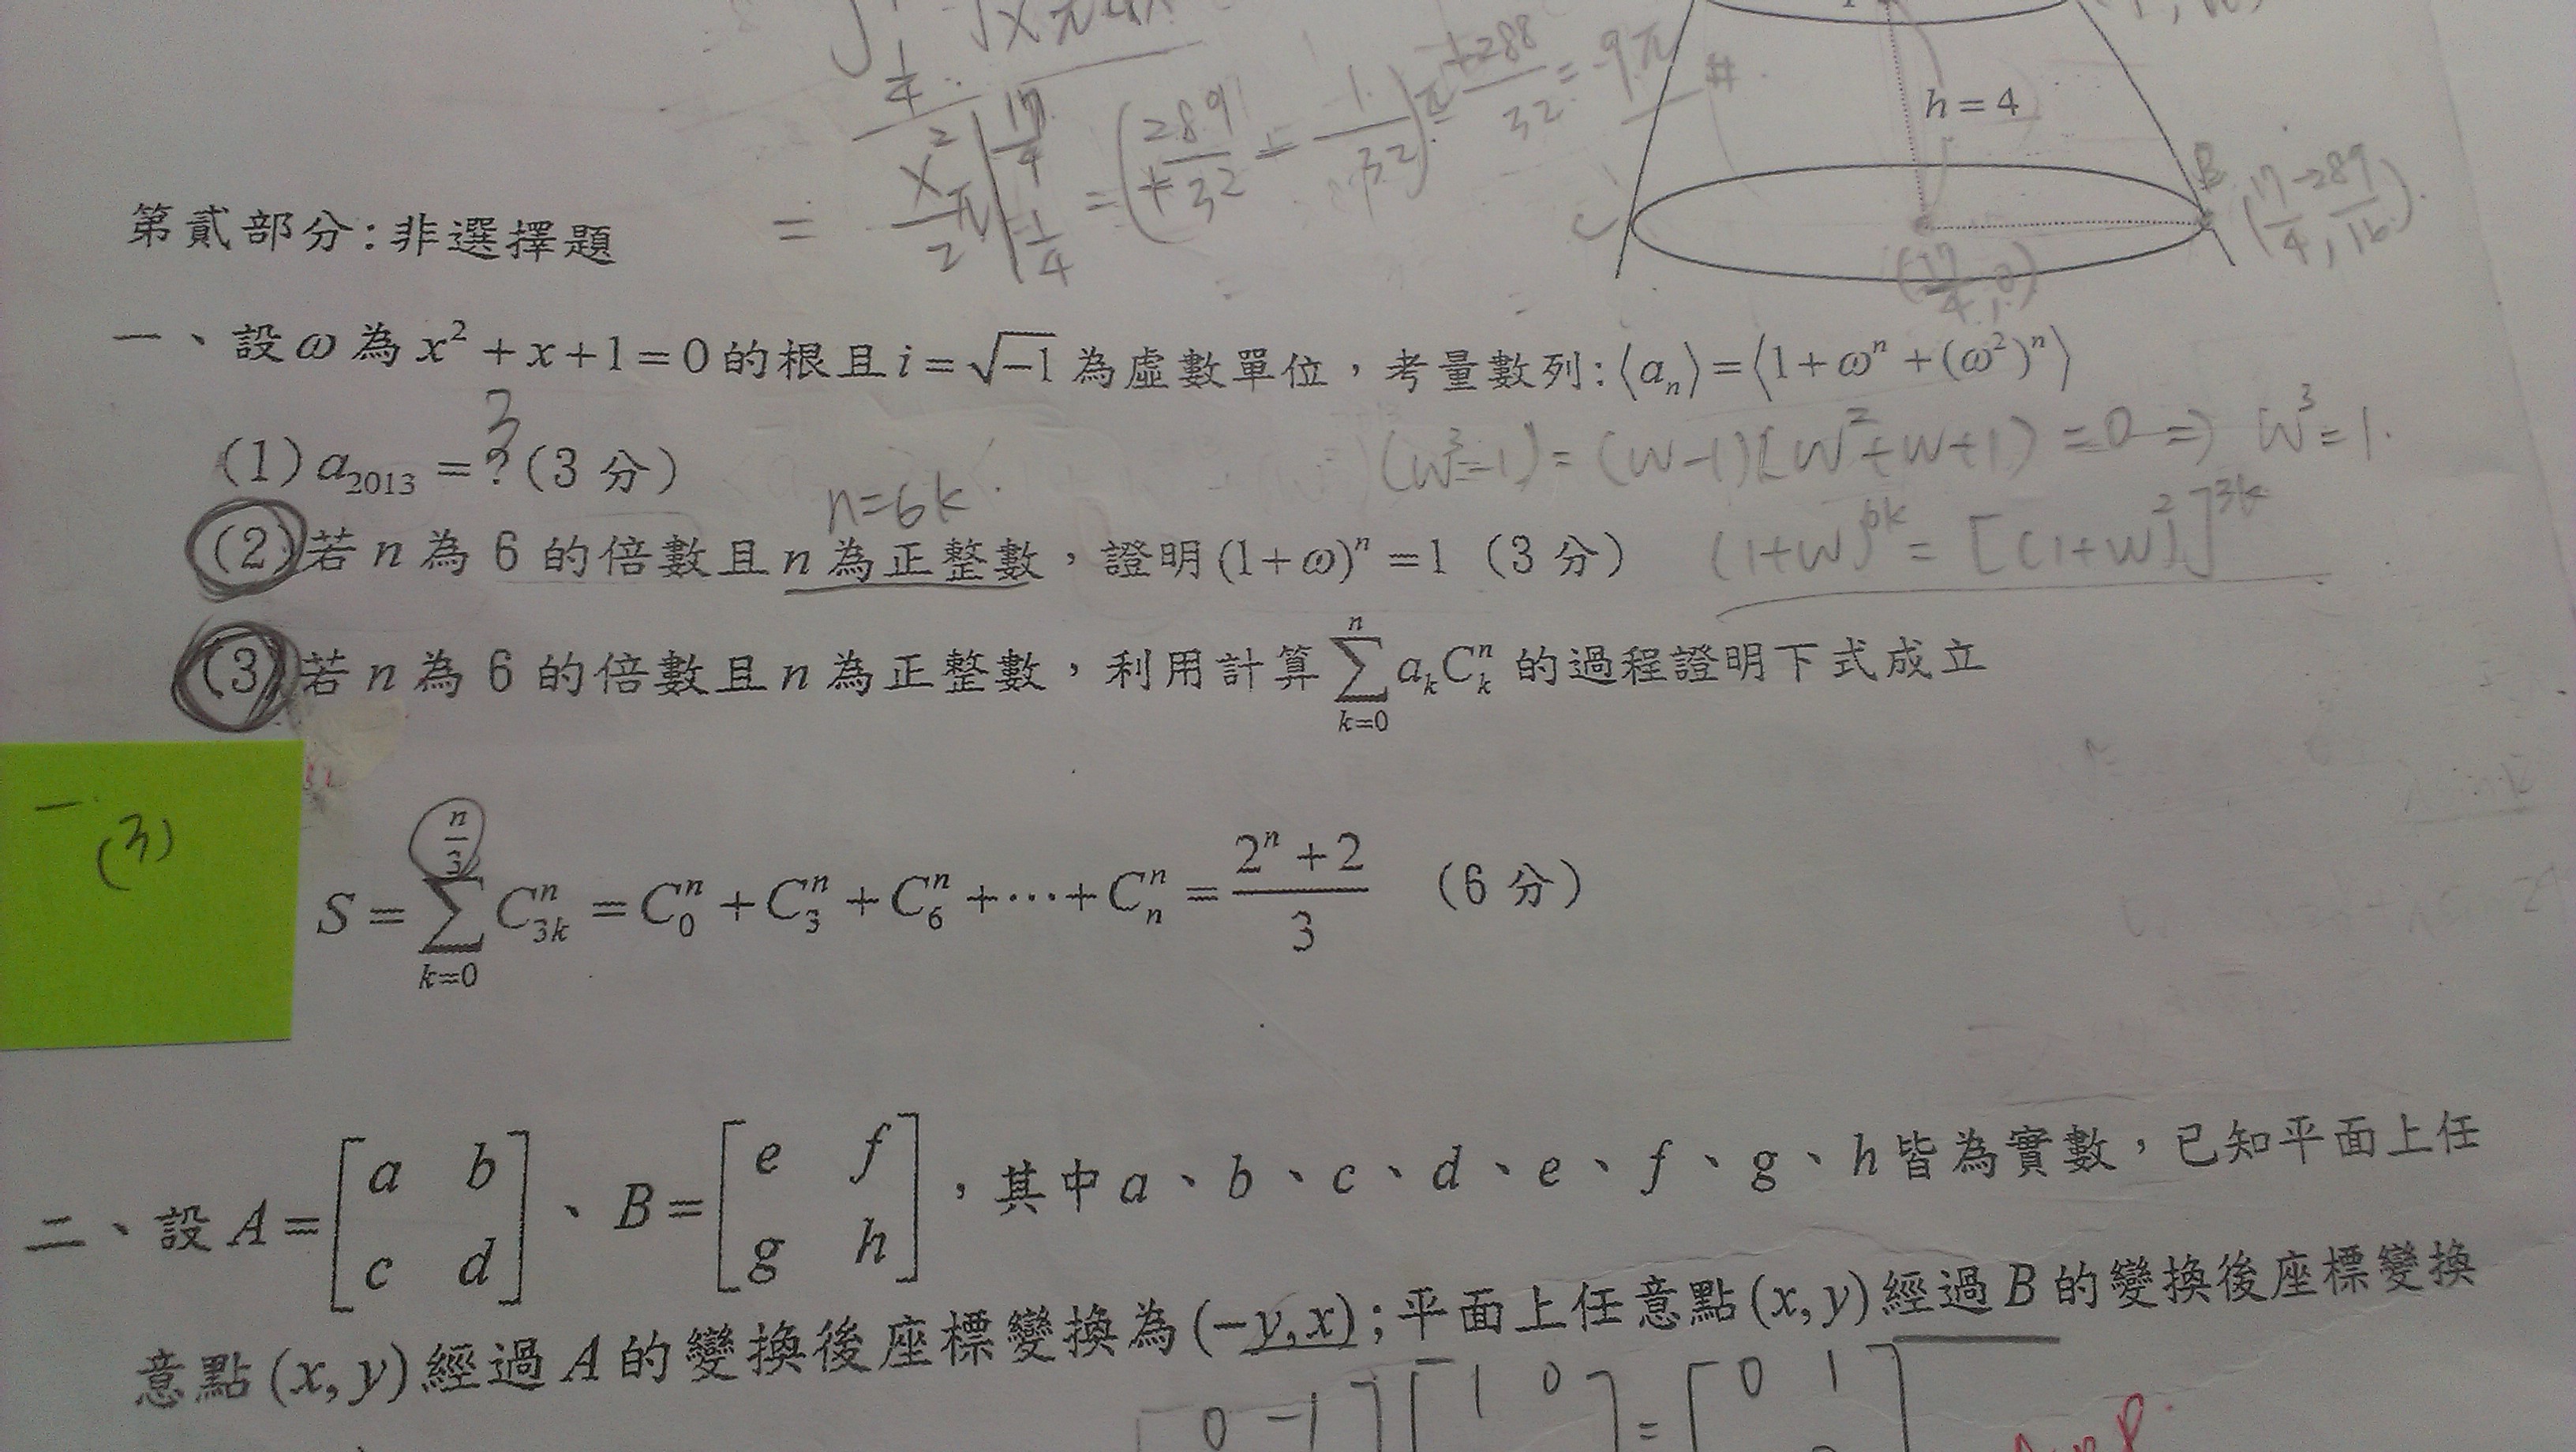 ∫ √x π dx
1/4
h = 4
= x²/2 π | 17/4 1/4 = (289/32 - 1/32) π = 288/32 = 9π #
B (17/4, 289/16)
(17/4, 0)
第貳部分:非選擇題
一、設ω為 x² + x + 1 = 0 的根且 i = √-1 為虛數單位,考量數列:⟨aₙ⟩ = ⟨1 + ωⁿ + (ω²)ⁿ⟩
3
(1) a₂₀₁₃ = ? (3 分)
(w³-1) = (w-1)(w²+w+1) = 0 ⇒ w³ = 1.
n=6k
(2) 若 n 為 6 的倍數且 n 為正整數,證明 (1+ω)ⁿ = 1 (3 分)
(1+w)^6k = [(1+w)²]^3k
(3) 若 n 為 6 的倍數且 n 為正整數,利用計算 ∑_{k=0}^{n} a_k C_k^n 的過程證明下式成立
一
(3)
S = ∑_{k=0}^{n/3} C_{3k}^n = C_0^n + C_3^n + C_6^n + ⋯ + C_n^n = (2ⁿ + 2)/3 (6 分)
二、設 A = [a b; c d]、B = [e f; g h],其中 a、b、c、d、e、f、g、h 皆為實數,已知平面上任
意點 (x, y) 經過 A 的變換後座標變換為 (-y, x);平面上任意點 (x, y) 經過 B 的變換後座標變換
[0 -1] [1 0] = [0 1]